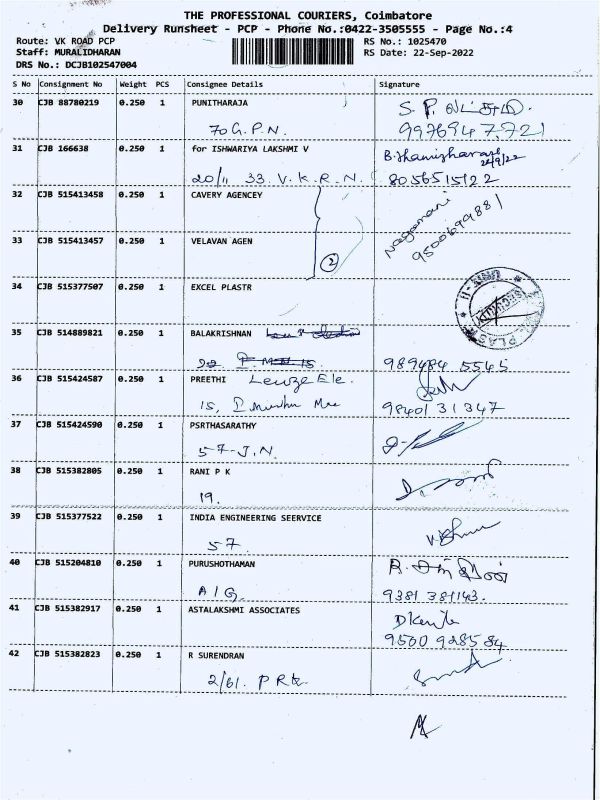 THE PROFESSIONAL COURIERS, Coimbatore
Delivery Runsheet - PCP - Phone No.:0422-3505555 - Page No.:4
Route: VK ROAD PCP
Staff: MURALIDHARAN
DRS No.: DCJB102547004
RS No.: 1025470
RS Date: 22-Sep-2022
S No Consignment No Weight PCS Consignee Details Signature
30 CJB 88780219 0.250 1 PUNITHARAJA
70 G.P.N. 9976947721
31 CJB 166638 0.250 1 for ISHWARIYA LAKSHMI V
20/11 33. V.K.R.N. 8056515122
32 CJB 515413458 0.250 1 CAVERY AGENCEY Nagamani
9500699881
33 CJB 515413457 0.250 1 VELAVAN AGEN
2
34 CJB 515377507 0.250 1 EXCEL PLASTR
35 CJB 514889821 0.250 1 BALAKRISHNAN
989484 5545
36 CJB 515424587 0.250 1 PREETHI Leuze Ele.
15, 98401 31347
37 CJB 515424590 0.250 1 PSRTHASARATHY
57-J.N.
38 CJB 515382805 0.250 1 RANI P K
19.
39 CJB 515377522 0.250 1 INDIA ENGINEERING SEERVICE
57.
40 CJB 515204810 0.250 1 PURUSHOTHAMAN
A/G. 9381 381143.
41 CJB 515382917 0.250 1 ASTALAKSHMI ASSOCIATES
9500 928584
42 CJB 515382823 0.250 1 R SURENDRAN
2/61. P R